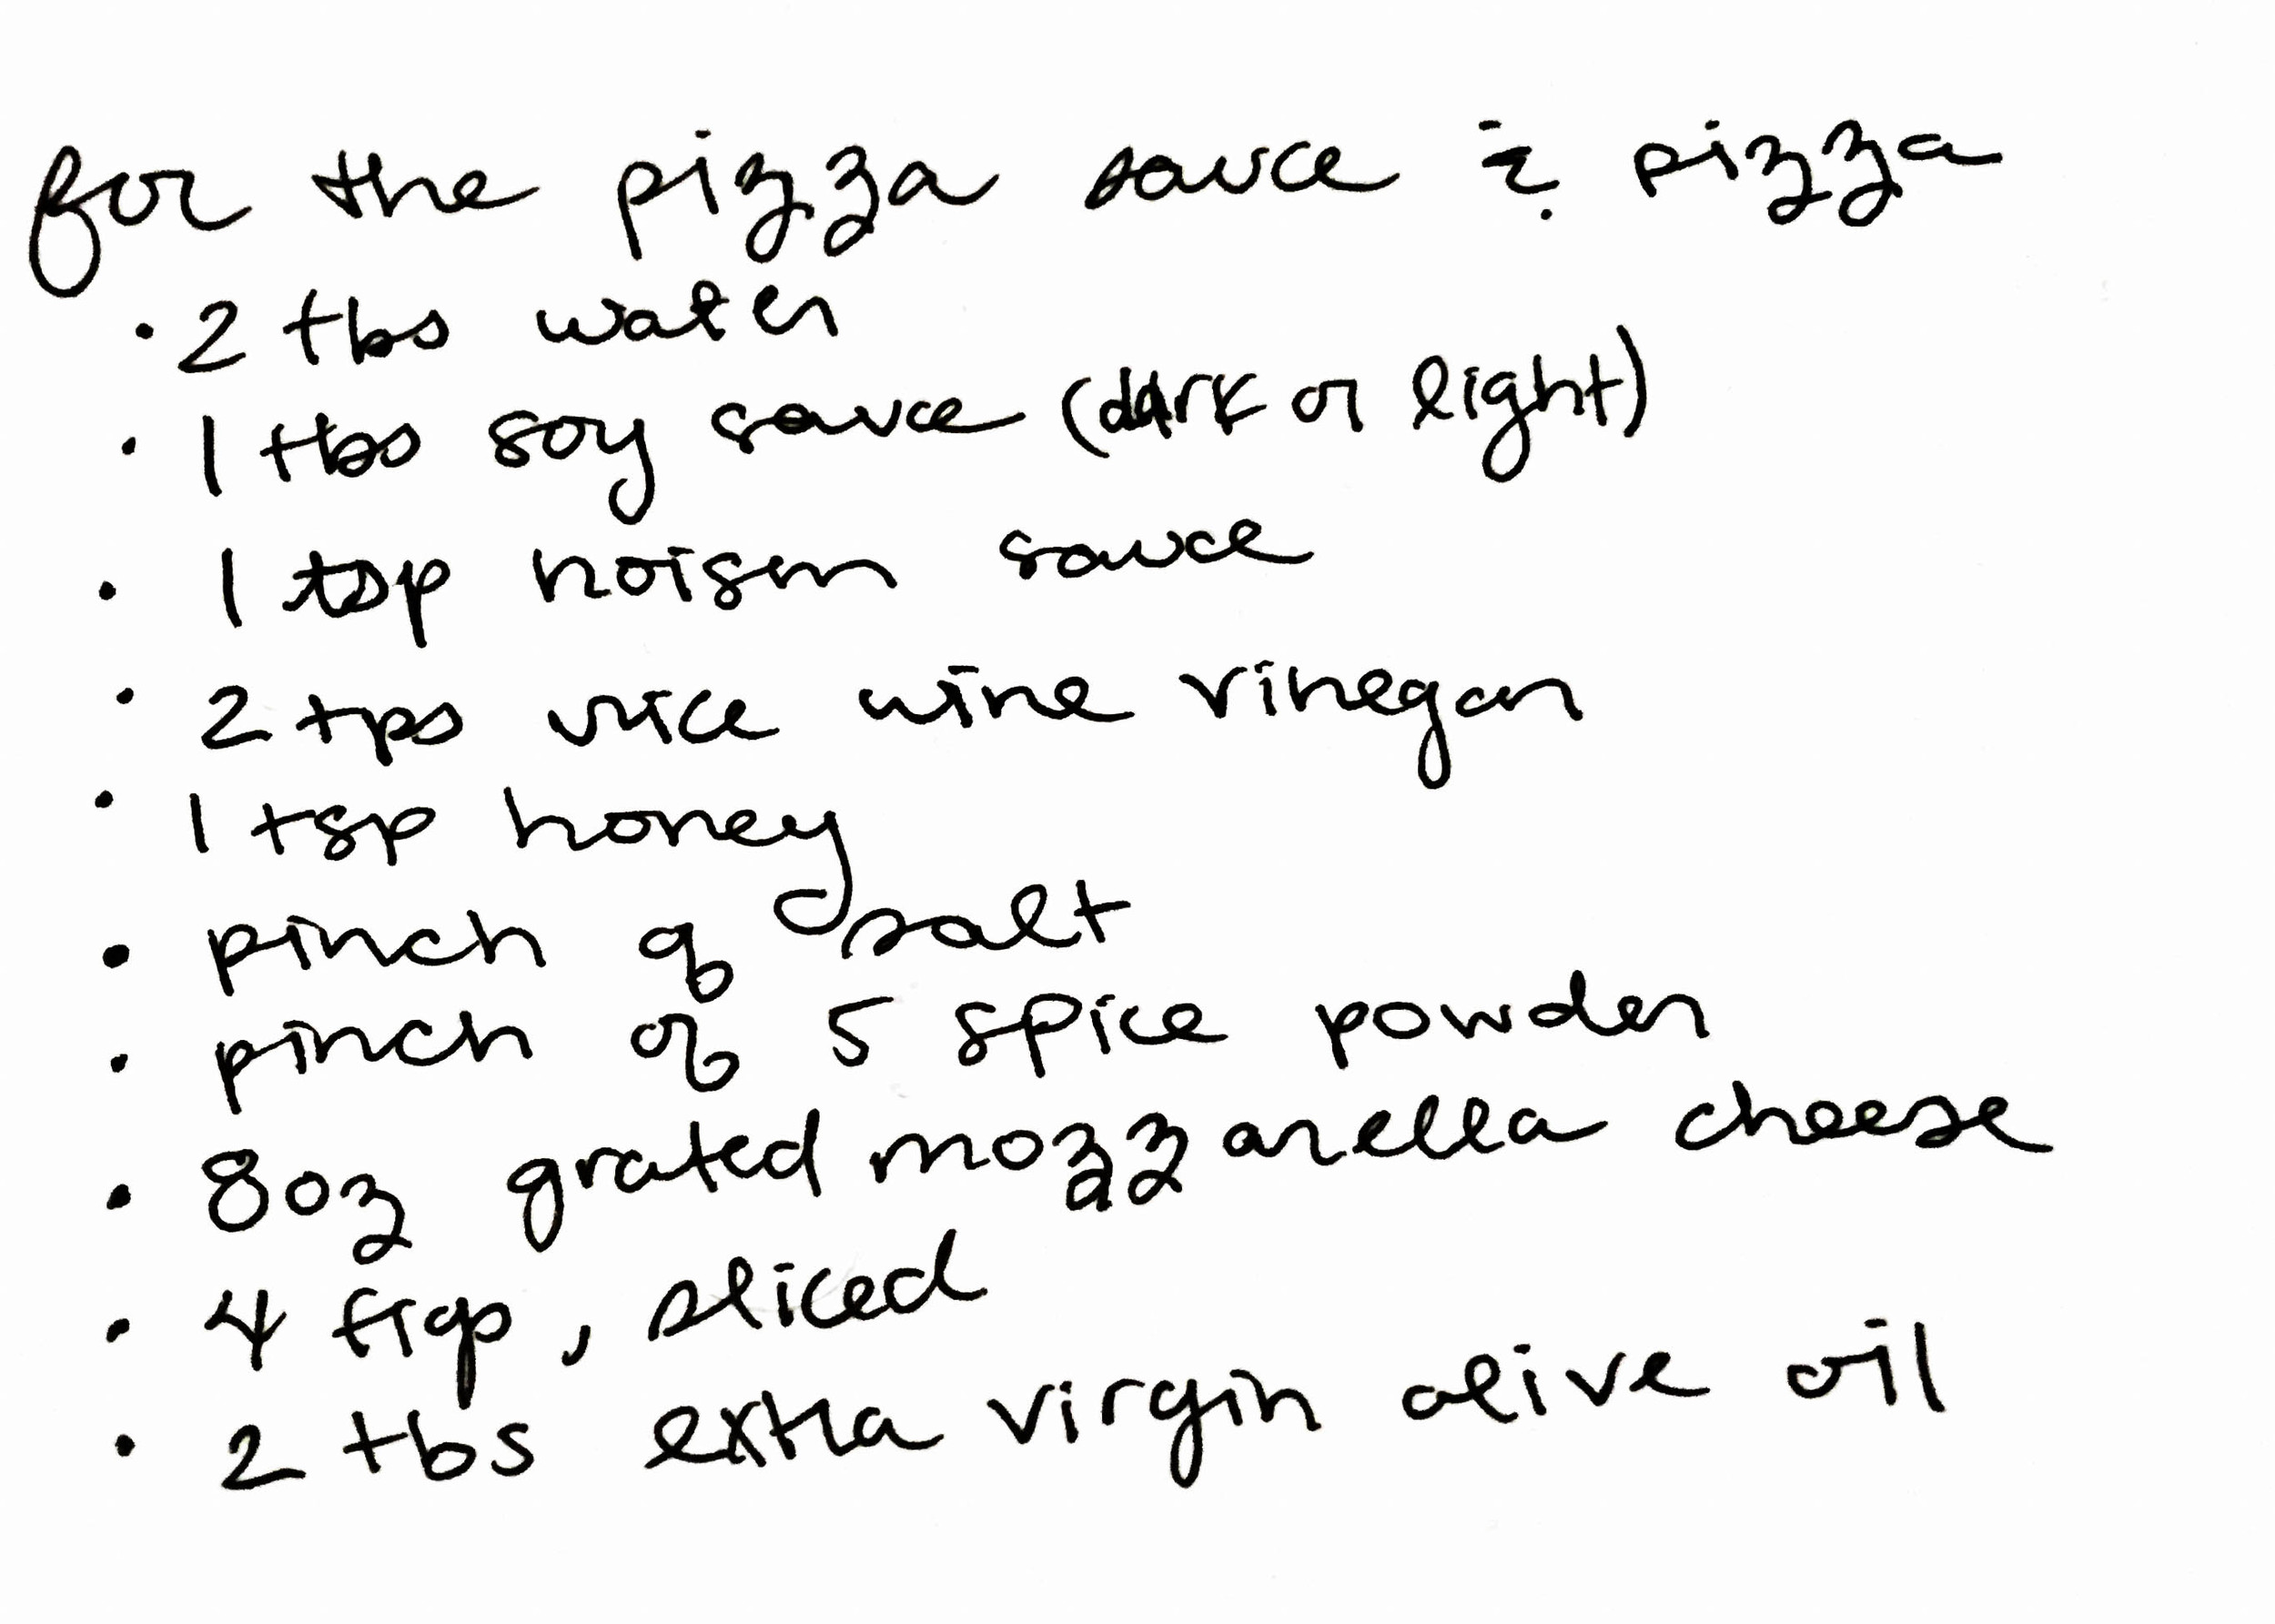 for the pizza sauce & pizza
· 2 tbs water
· 1 tbs soy sauce (dark or light)
· 1 tsp hoisin sauce
· 2 tps rice wine vinegar
· 1 tsp honey
· pinch of salt
· pinch of 5 spice powder
· 8oz grated mozzarella cheese
· 4 figs, sliced
· 2 tbs extra virgin olive oil